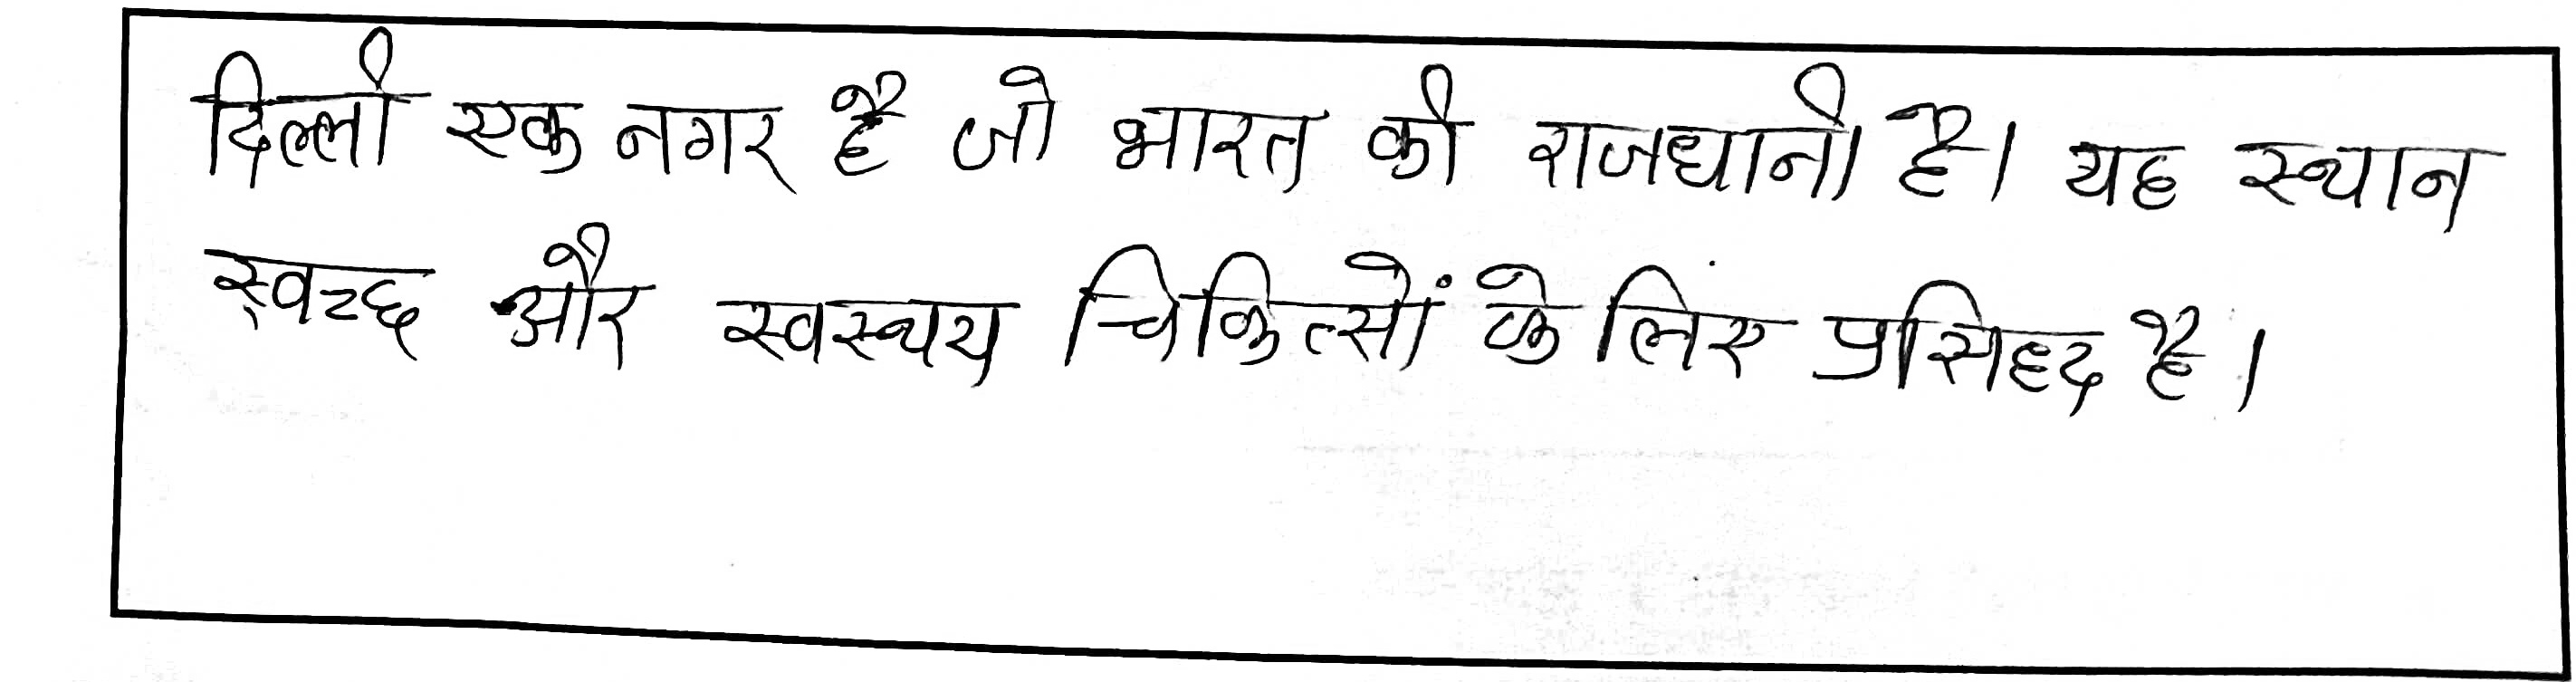 दिल्ली एक नगर है जो भारत की राजधानी है। यह स्थान
स्वच्छ और स्वस्थय चिकित्सों के लिंए प्रसिध्द है।